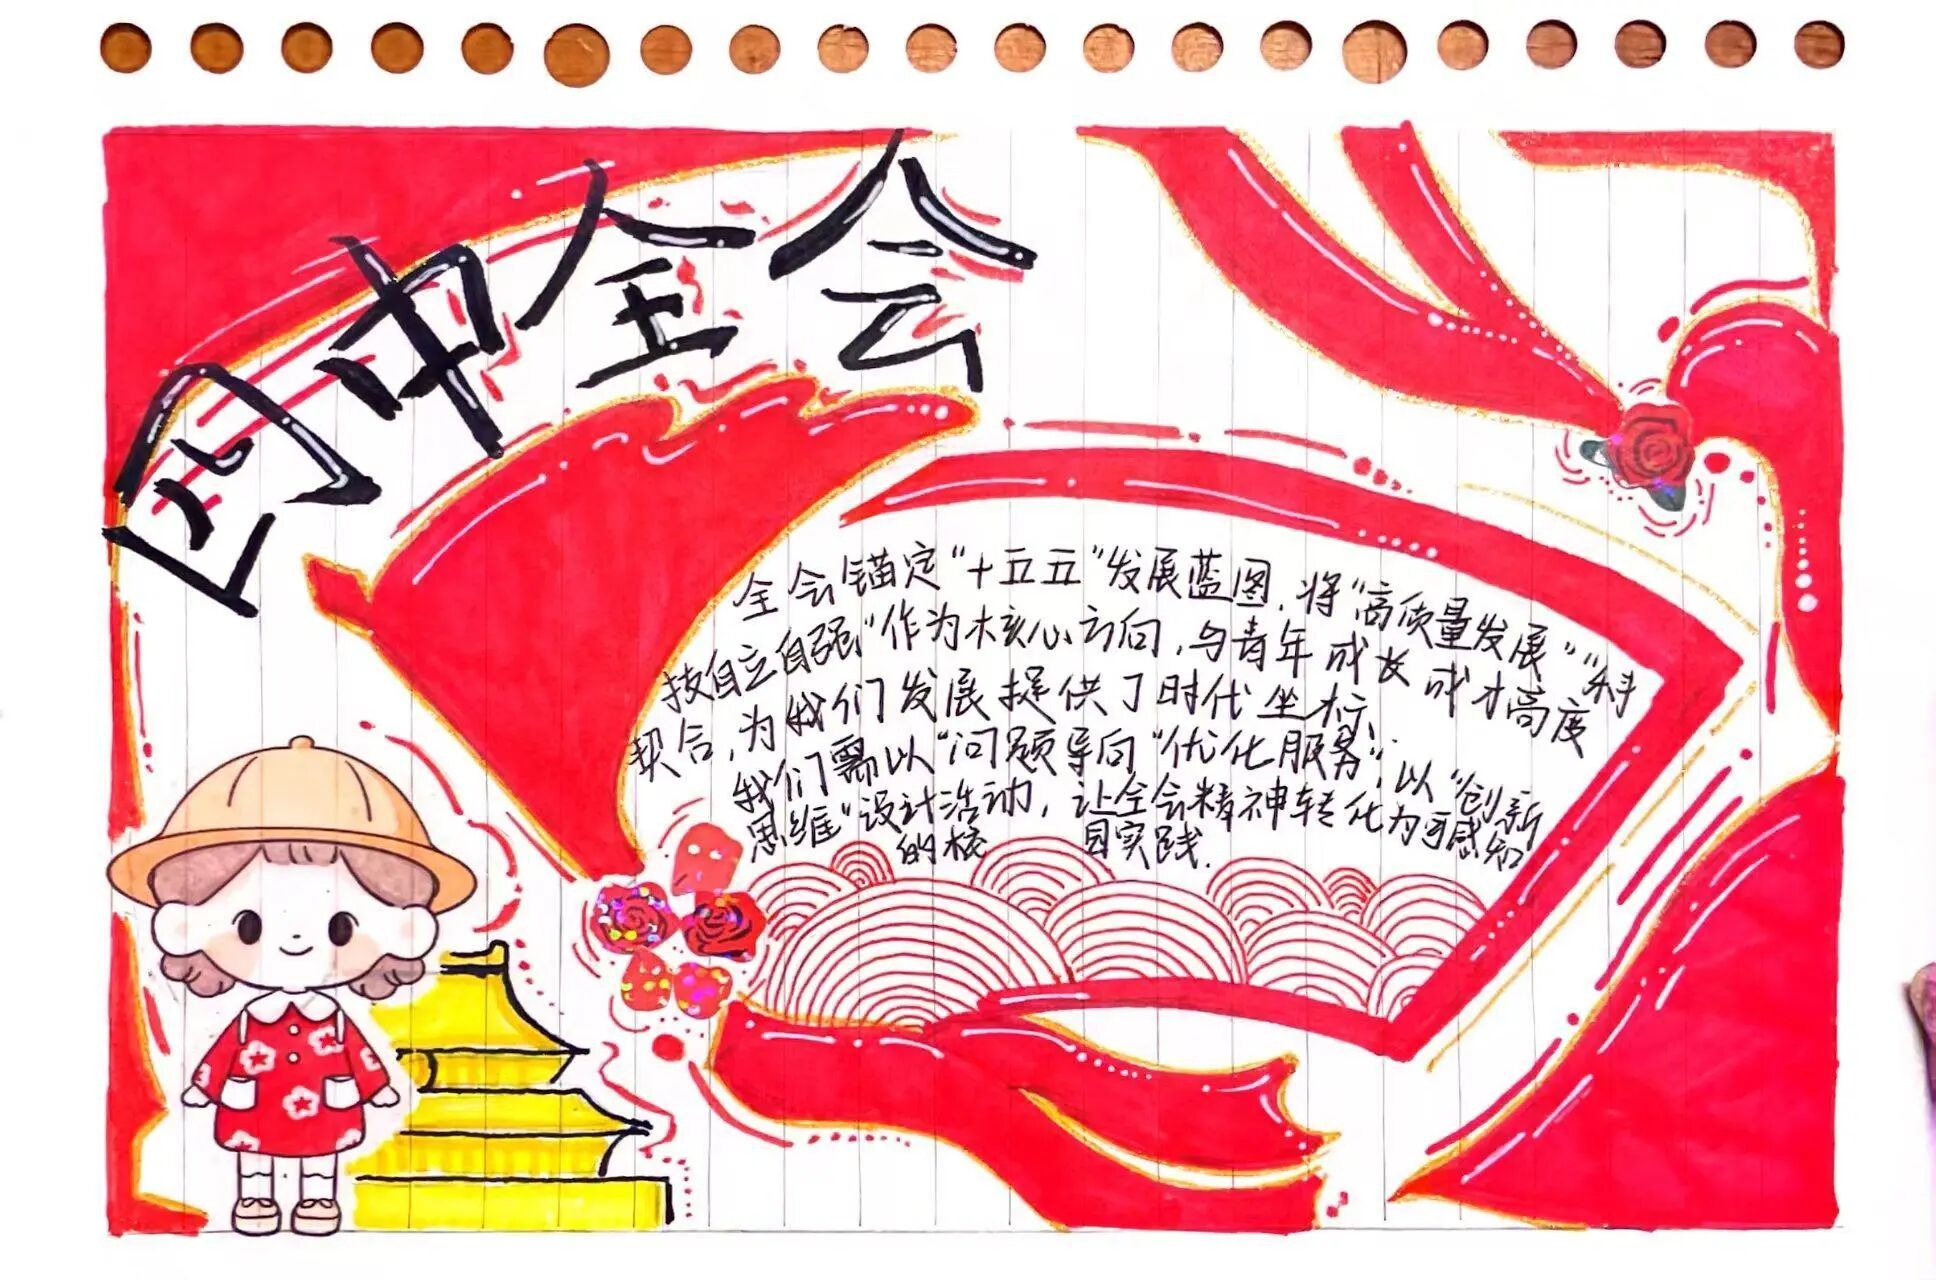 四中全会
全会锚定“十五五”发展蓝图，将“高质量发展”“科
技自立自强”作为核心方向，与青年成长成才高度
契合，为我们发展提供了时代坐标，
我们需以“问题导向“优化服务”，以“创新
思维”设计活动，让全会精神转化为可感知
的校园实践．